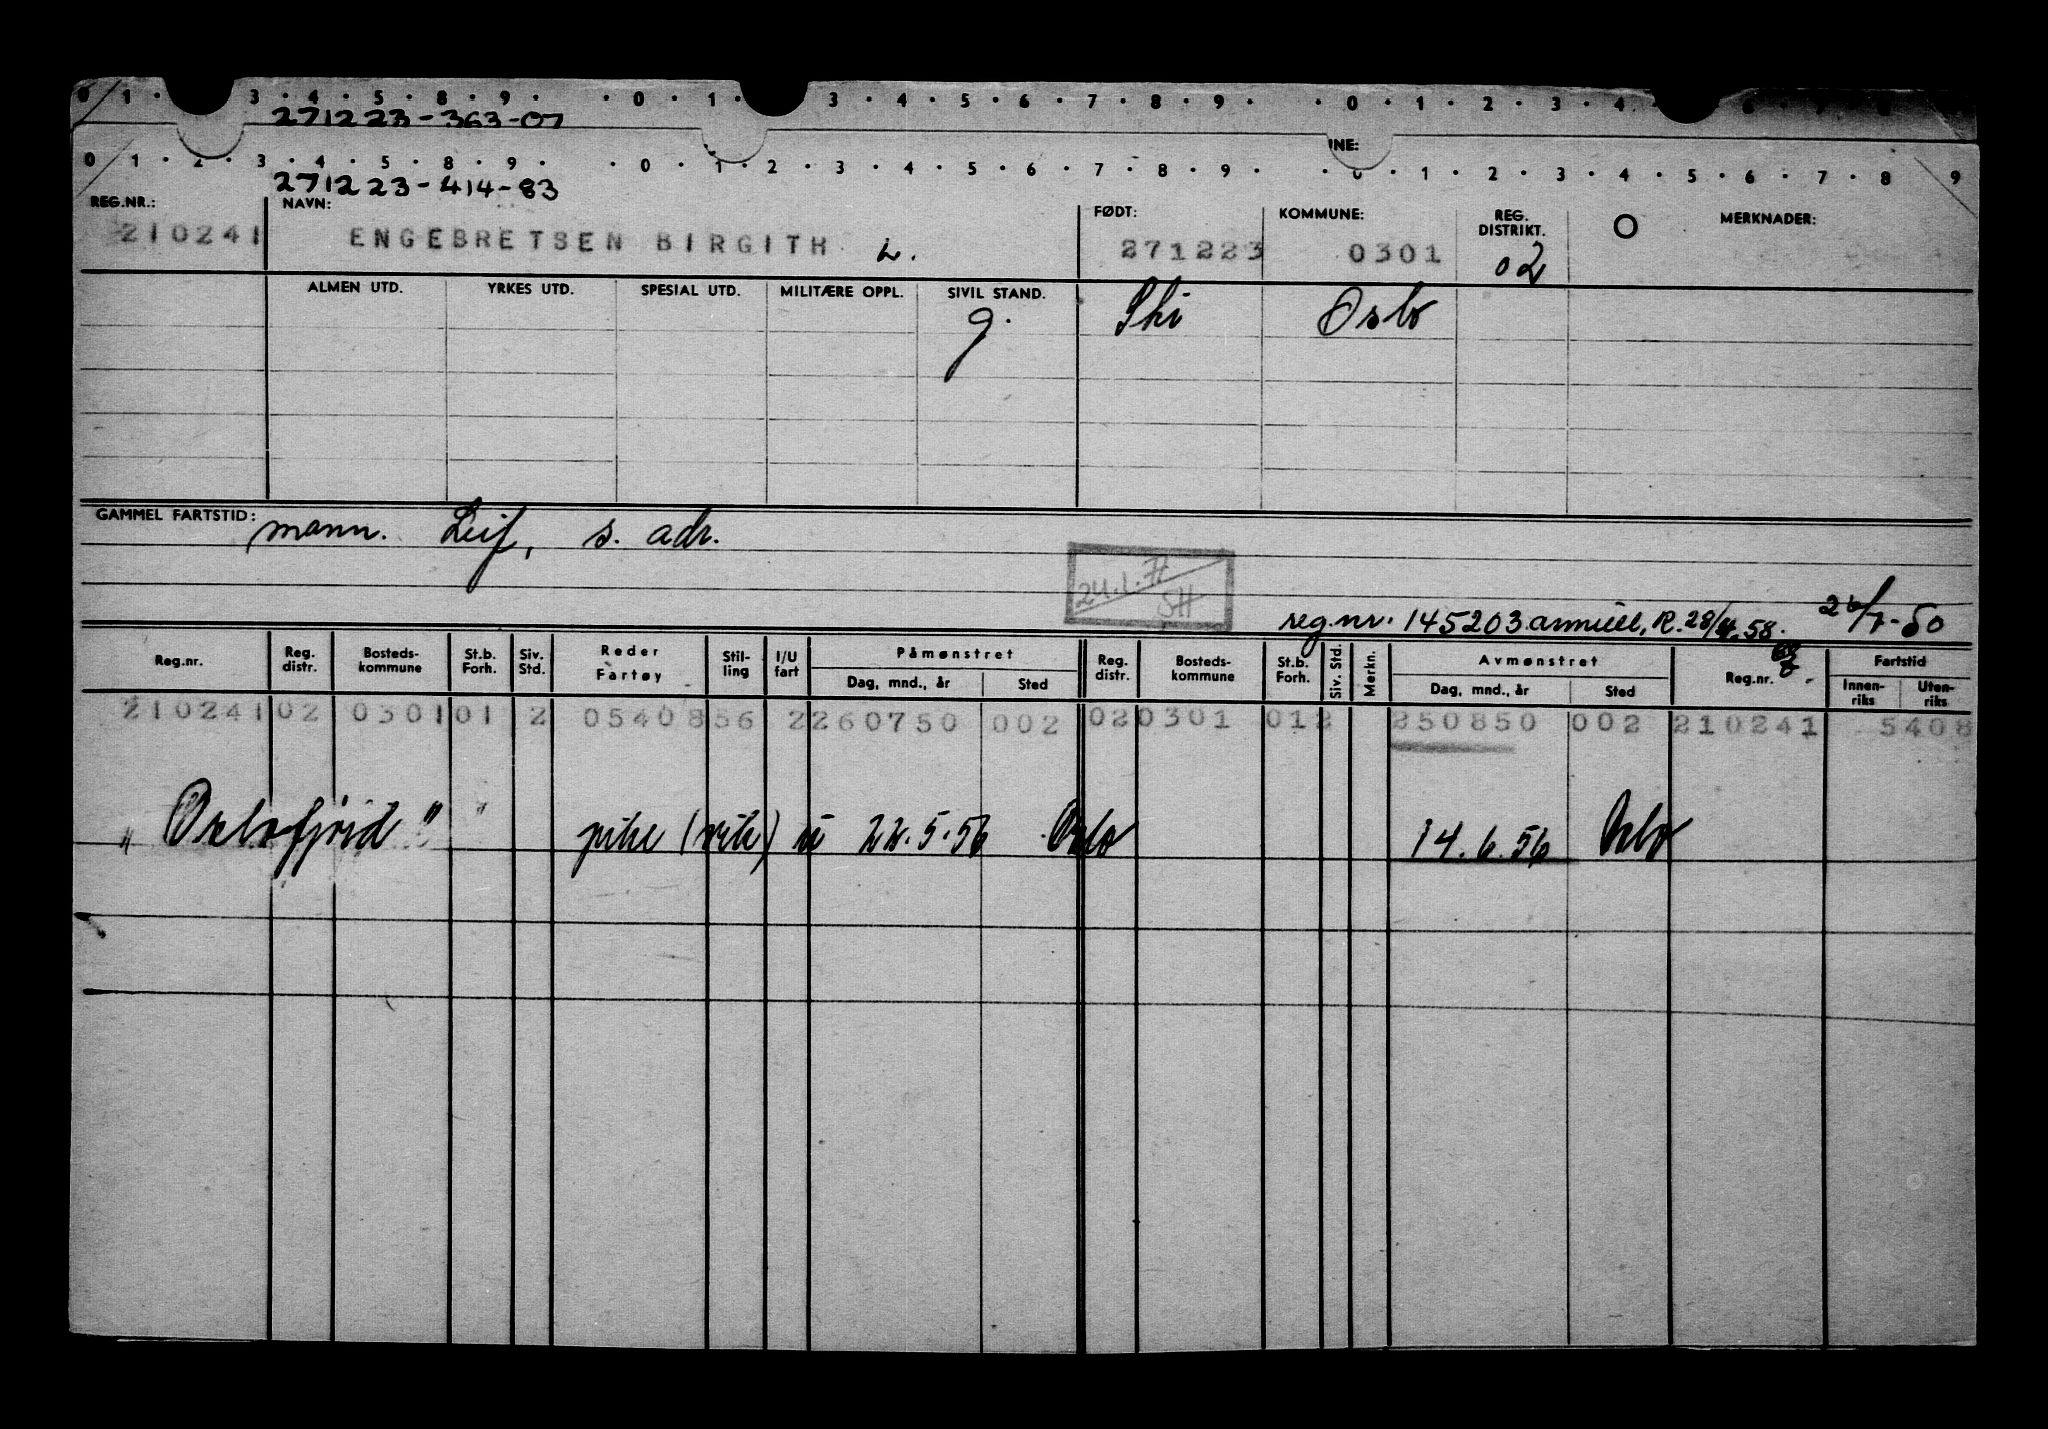 0 1 · 3 · 4 · 5 · 8 · 9 · · 0 · 1 · 3 · 4 · 5 · 6 · 7 · 8 · 9 · · 0 · 1 · 2 · 3 · 4 6 · 7 · 8
271223-363-07
INE:
0 1 · 2 · 3 · 4 · 5 · 8 · 9 · · 0 · 1 · 2 · 3 · 4 · 5 · 6 · 7 · 8 · 9 · · 0 · 1 · 2 · 3 · 4 · 5 · 6 · 7 · 8 9
271223-414-83
REG.NR.: NAVN: FØDT: KOMMUNE: REG. DISTRIKT. O MERKNADER:
210241 ENGEBRETSEN BIRGITH L. 271223 0301 02
ALMEN UTD. YRKES UTD. SPESIAL UTD. MILITÆRE OPPL. SIVIL STAND.
g. Ski Oslo
GAMMEL FARTSTID: mann. Leif, s. adr.
24.1.71
SH
reg.nr. 145203 annull, R. 28/4.58. 26/7-50
Reg.nr. Reg. distr. Bosteds-kommune St.b. Forh. Siv. Std. Reder Fartøy Stil-ling I/U fart Påmønstret Reg. distr. Bosteds-kommune St.b. Forh. Siv. Std. Merkn. Avmønstret Reg.nr. Fartstid
Dag, mnd., år Sted Dag, mnd., år Sted Innen-riks Uten-riks
210241 02 0301 01 2 05408 56 2 260750 002 02 0301 01 2 250850 002 210241 5408
"Oslofjord" " pike (vik) u 22.5.56 Oslo 14.6.56 Oslo